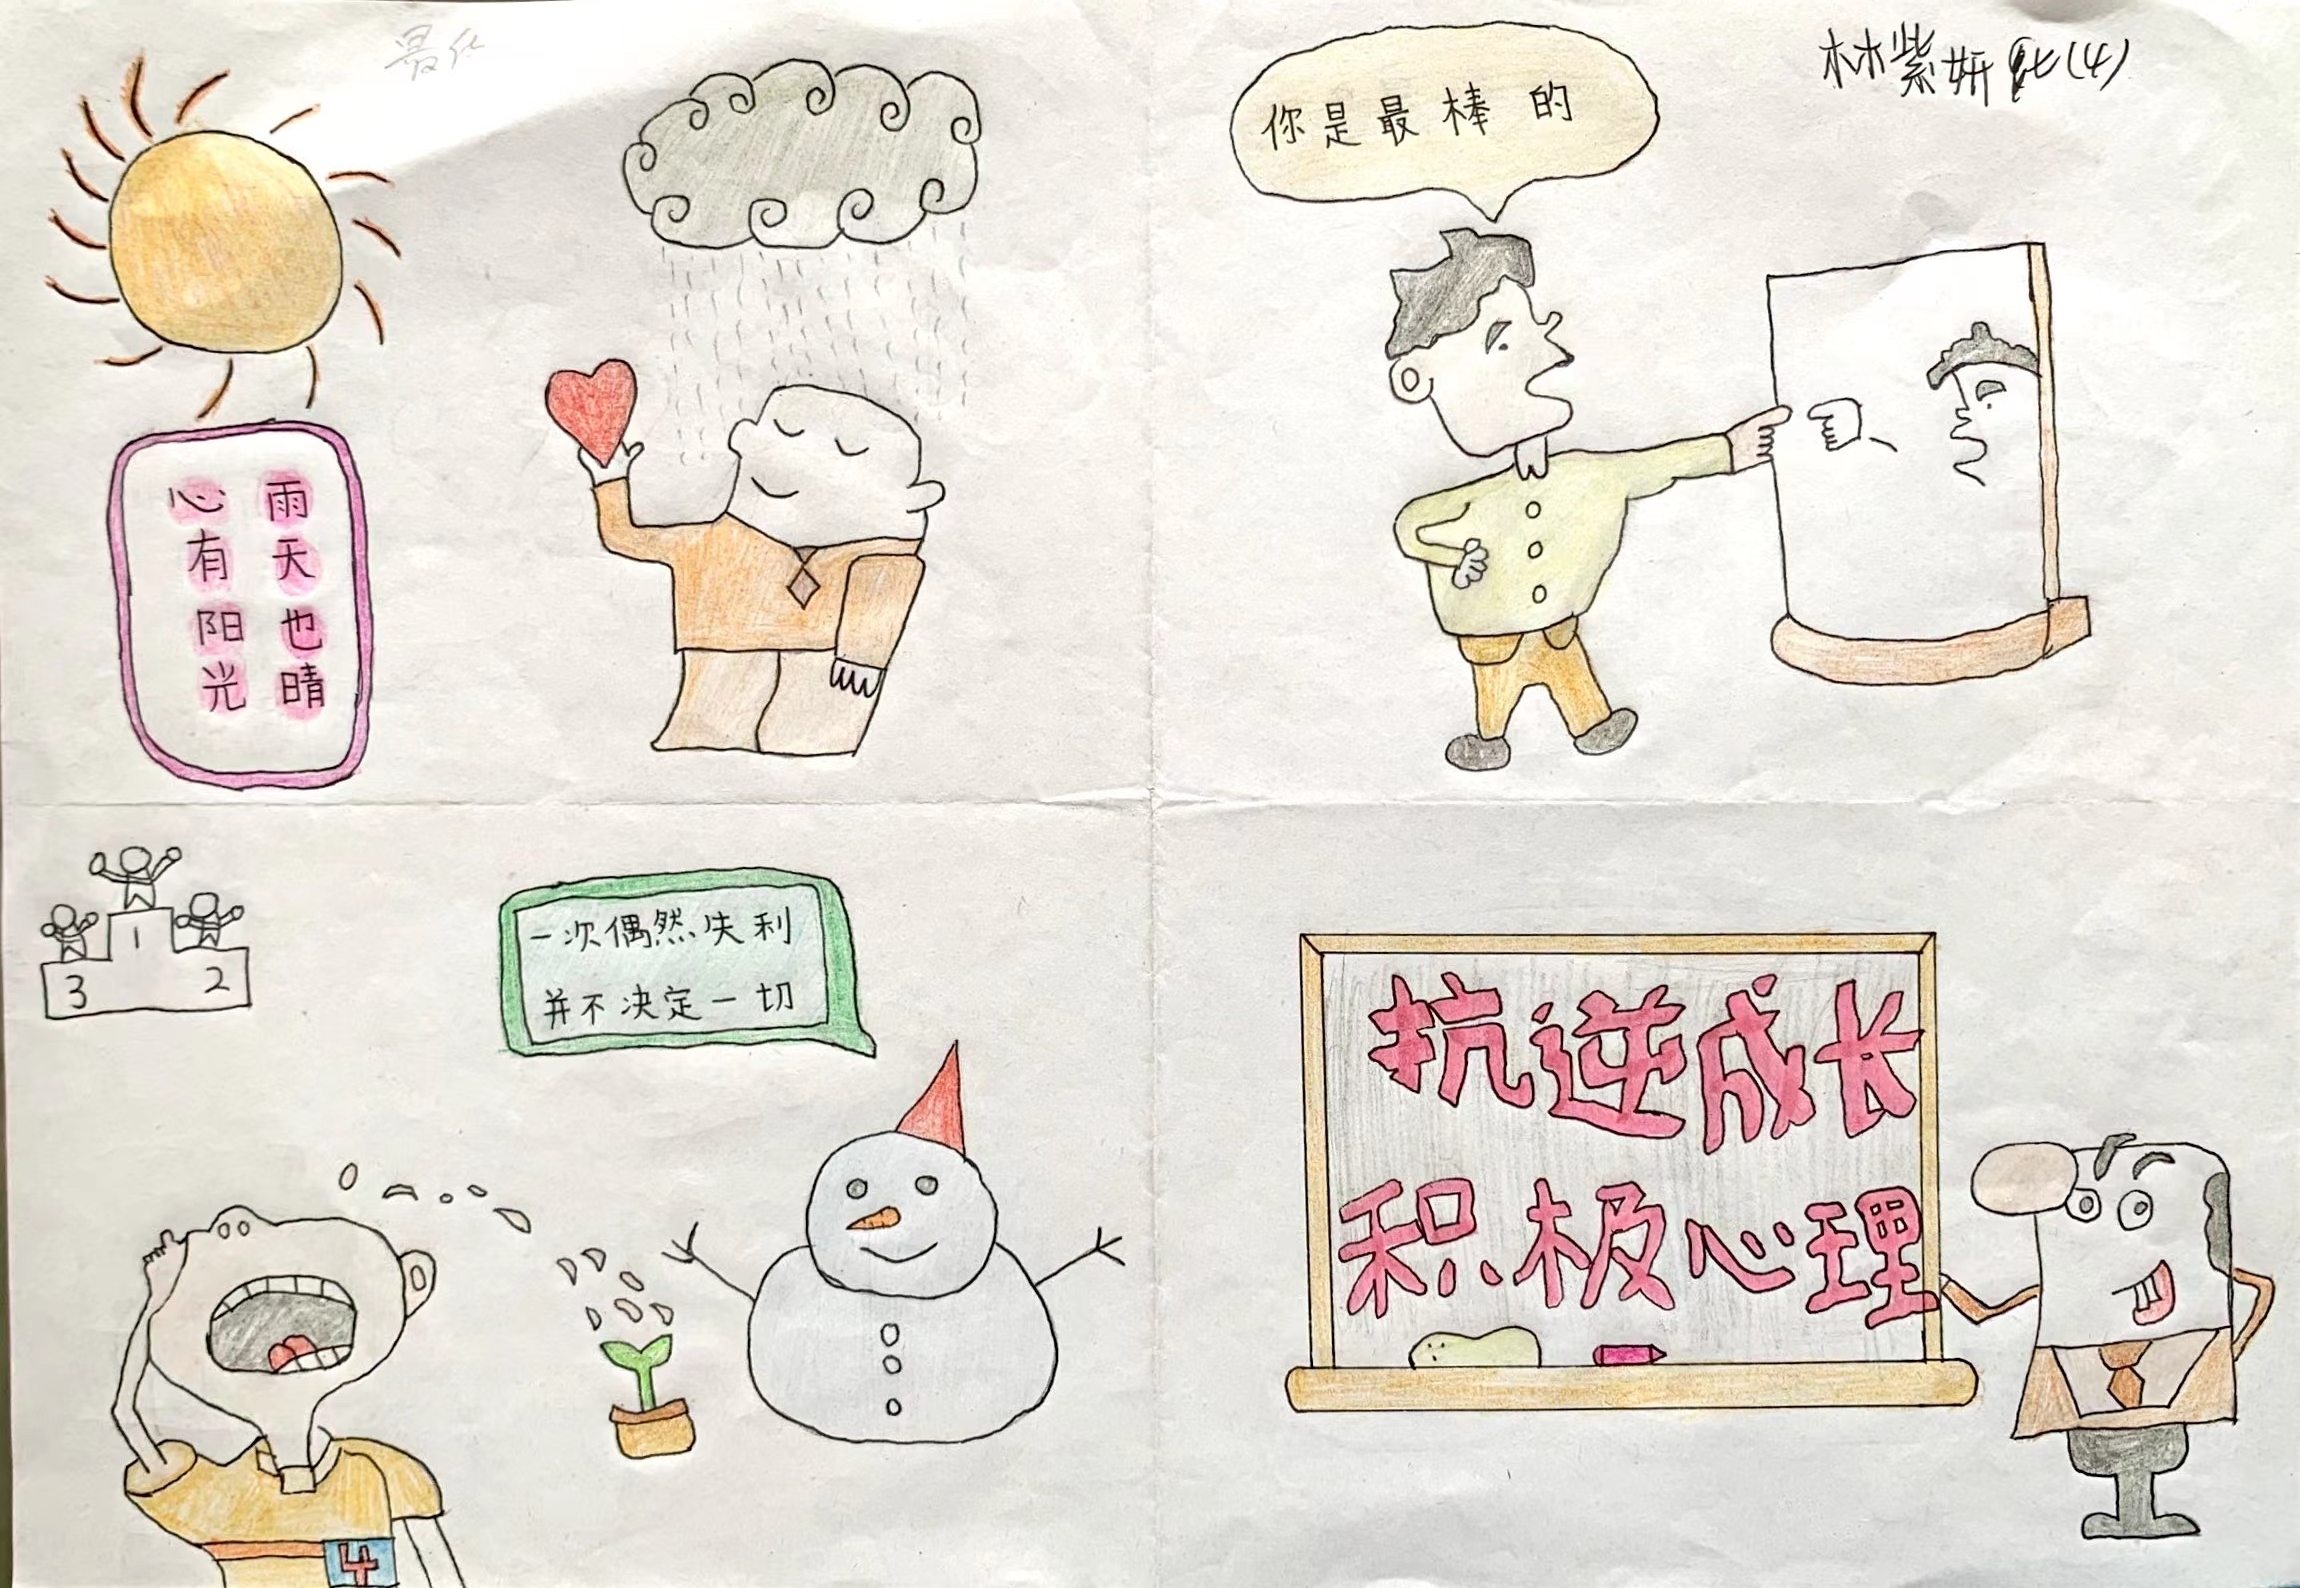 最佳
林紫妍 七(4)
你是最棒的
雨天也晴
心有阳光
1
3 2
一次偶然失利
并不决定一切
抗逆成长
积极心理
4